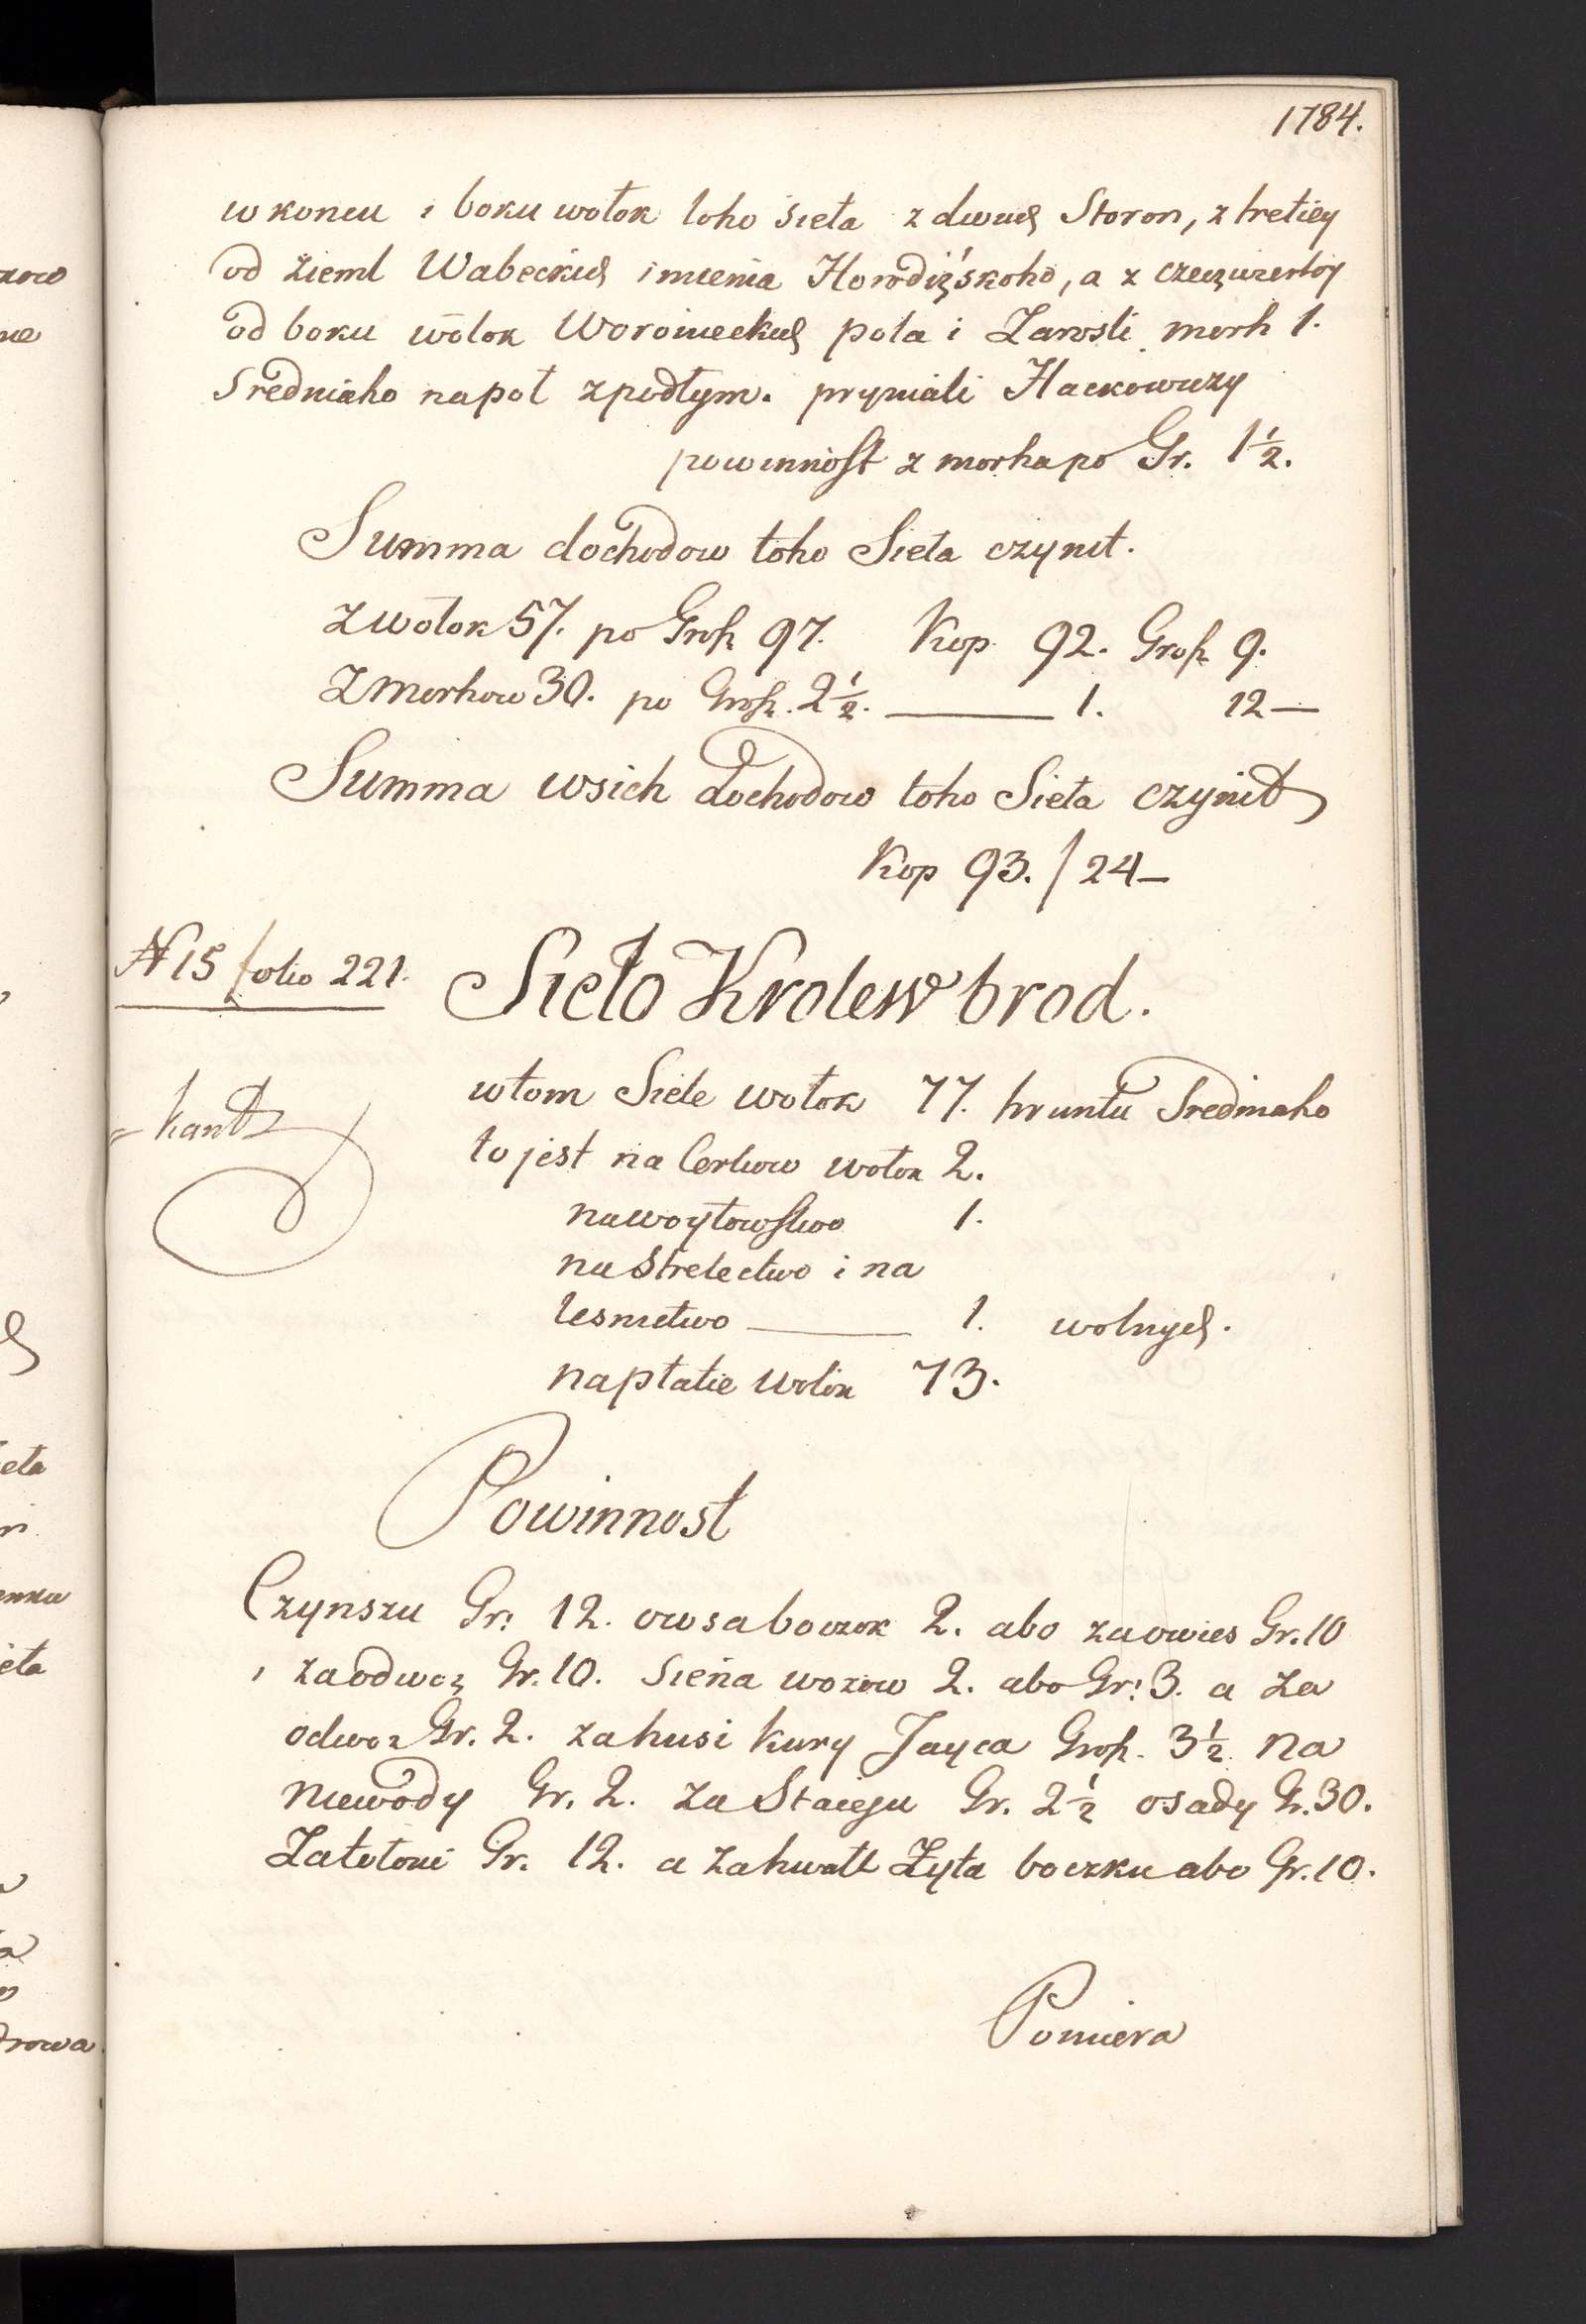 1784.
w koncu i boku wołok toho sieła z dwuch Storon, z tretiey
od zieml Wabeckich imienia Horodiżskoho, a z czeczwertoy
od boku wołok Woroinieckich pola i Zarosli morh 1.
Sredniaho napoł zpodłym. pryniali Hackowiczy
powinnost z morha po Gr. 1½.
Summa dochodow toho Sieła czynit.
Z wołok 57. po Grosz 97. Kop 92. Grosz 9.
Z morhow 30. po Grosz. 2½. — 1. 12—
Summa wsich dochodow toho Sieła czynit
Kop 93. / 24—
N 15 folio 221.
Sieło Krolew brod.
wtom Siele wołok 77. hruntu Sredniaho
to jest na Cerkow wołok 2.
na woytowstwo 1.
na Strelectwo i na
lesnictwo — 1. wolnych.
na płatie wołok 73.
Powinnost
Czynszu Gr: 12. owsa boczok 2. abo za owies Gr. 10
i za odwoz Gr. 10. Siena wozow 2. abo Gr: 3. a za
odwoz Gr. 2. za husi kury Jayca Grosz. 3½ na
niewody Gr. 2. za Staciju Gr. 2½ osady Gr. 30.
Za tołoki Gr. 12. a za hwałt Żyta boczku abo Gr. 10.
Pomiera